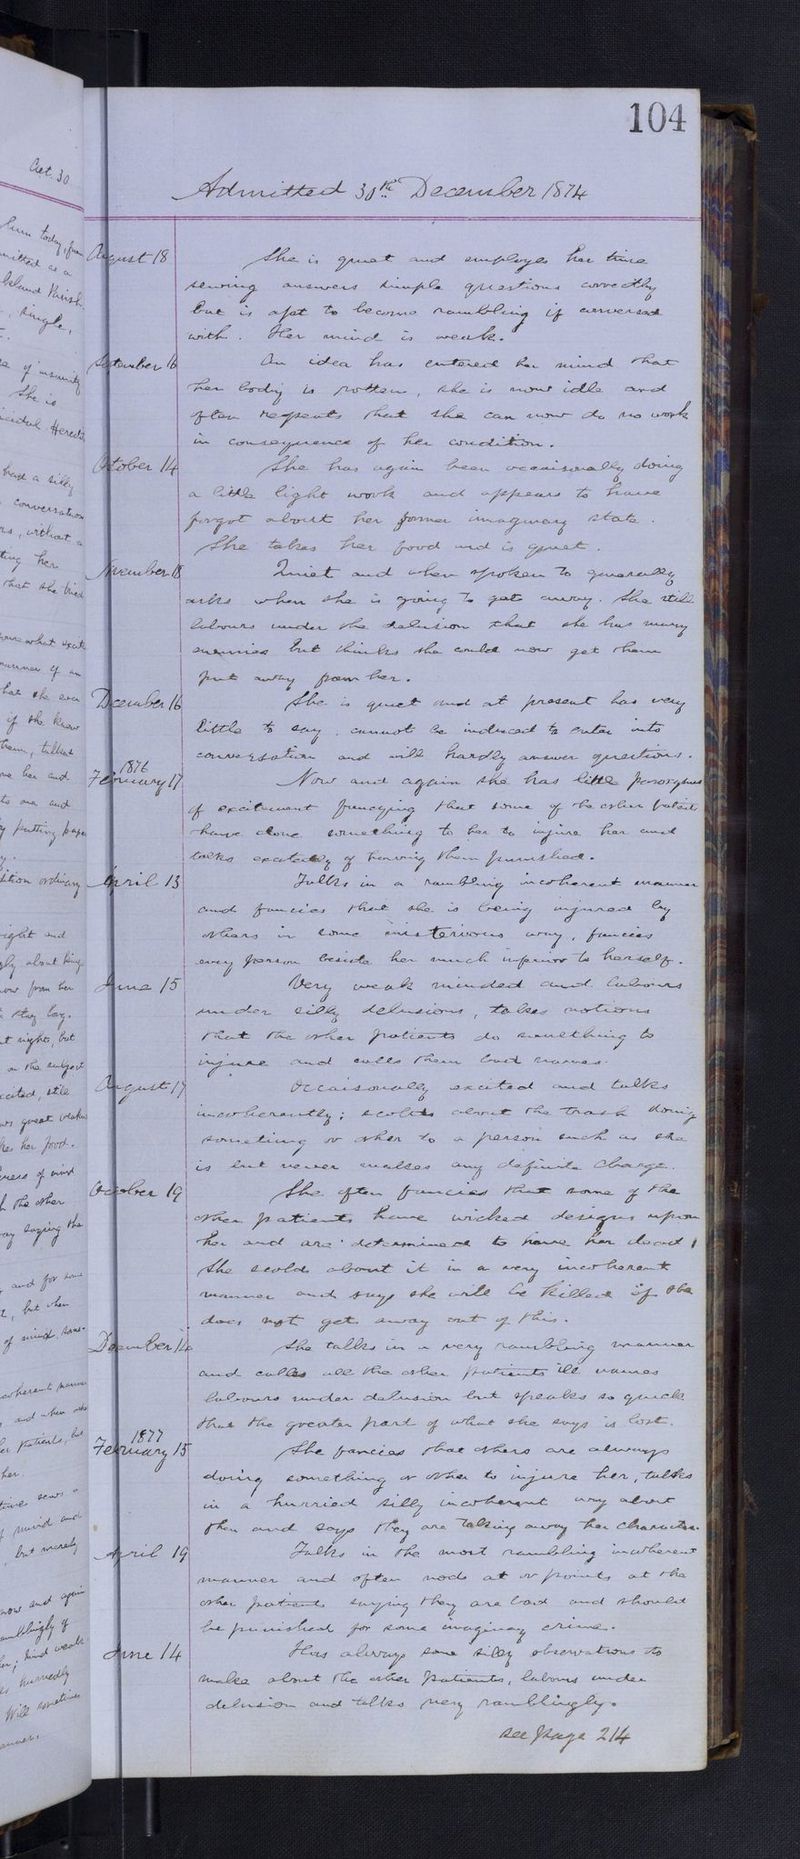 104
Admitted 30th December 1874
August 18 She is quiet and employs her time
sewing answers simple questions correctly
but is apt to become rambling if conversed
with. Her mind is weak.
September 16 An idea has entered her mind that
her body is rotten, she is now idle and
often repeats that she can now do no work
in consequence of her condition.
October 14 She has again been occaisonally doing
a little light work and appears to have
forgot about her former imaginary state.
She takes her food and is quiet.
November 18 Quiet and when spoken to generally
asks when she is going to get away. She still
labours under the delusion that she has many
enemies but thinks she could now get them
put away from her.
December 16 She is quiet and at present has very
little to say. cannot be induced to enter into
conversation and will hardly answer questions.
1876
February 17 Now and again she has little paroxysms
of excitement fancying that some of the other patients
have done something to her to injure her and
talks excitedly of having them punished.
April 13 Talks in a rambling incoherent manner
and fancies that she is being injured by
others in some misterious way, fancies
every person beside her much inferior to herself.
June 15 Very weak minded and labours
under silly delusions, takes notions
that the other patients do something to
injure and calls them bad names.
August 17 Occaisonally excited and talks
incoherently; scolds about the trash doing
something or other to a person such as she
is but never makes any definite charge.
October 19 She often fancies that some of the
other patients have wicked designs upon
her and are determined to have her dead,
She scolds about it in a very incoherent
manner and says she will be killed if she
does not get away out of this.
December 14 She talks in a very rambling manner
and calls all the other patients ill names
labours under delusion but speaks so quick
that the greater part of what she says is lost.
1877
February 15 She fancies that others are always
doing something or other to injure her, talks
in a hurried silly incoherent way about
them and says they are taking away her character.
April 19 Talks in the most rambling incoherent
manner and often nods at or points at the
other patients saying they are bad and should
be punished for some imaginary crime.
June 14 Has always some silly observations to
make about the other patients, labours under
delusion and talks very ramblingly.
see page 214